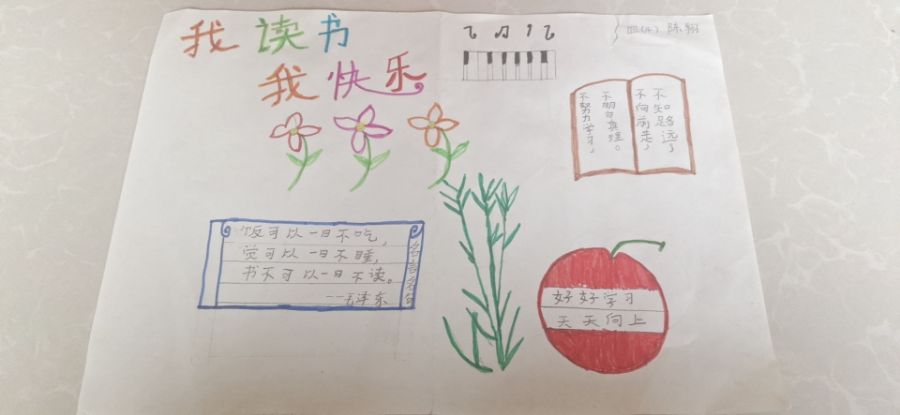 我读书
我快乐。
陈翔
不向前走,
不知路远;
不努力学习,
不明白真理。
饭可以一日不吃,
觉可以一日不睡,
书不可以一日不读。
--毛泽东
名言名句
好好学习
天天向上